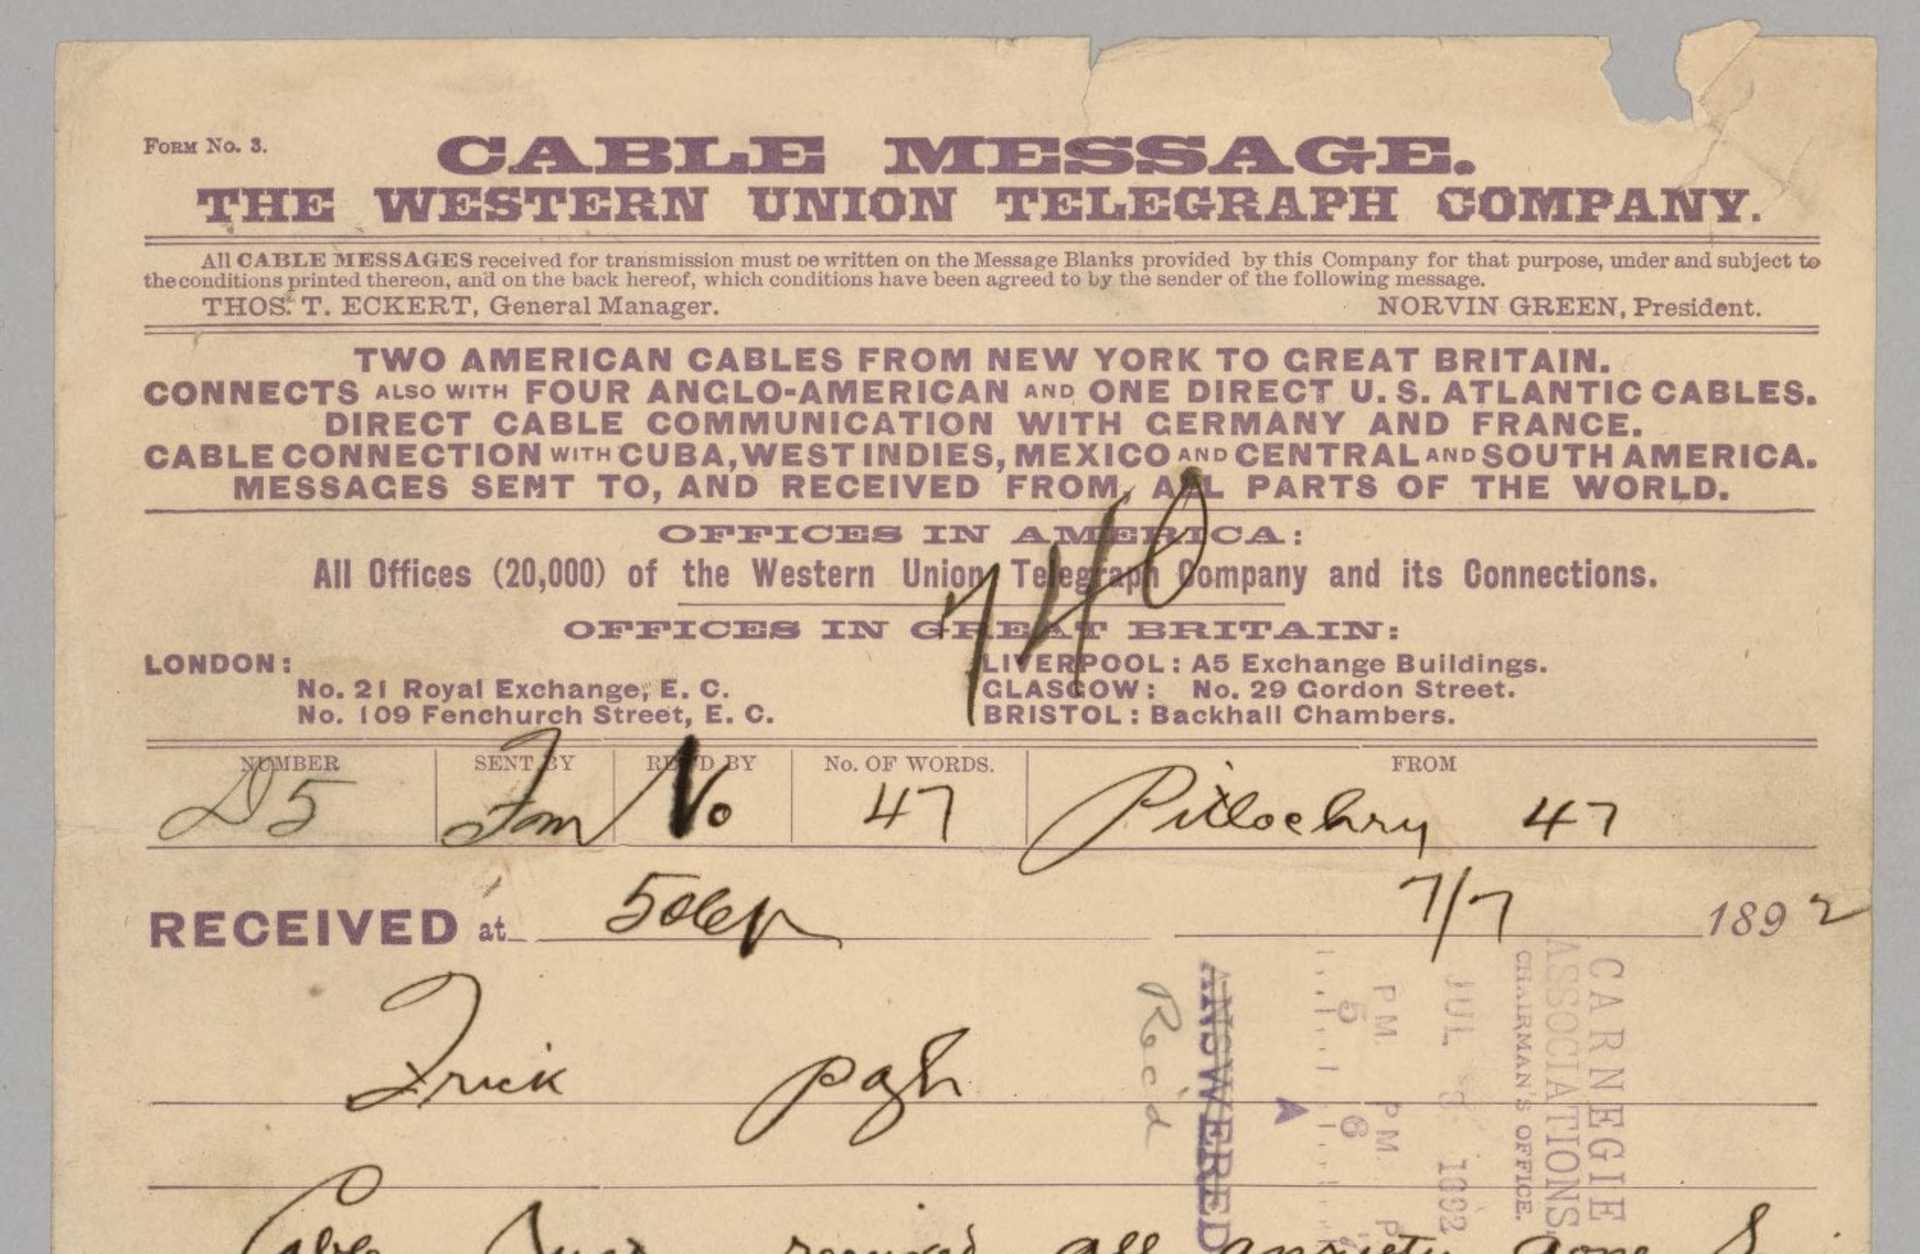 FORM No. 3.
CABLE MESSAGE.
THE WESTERN UNION TELEGRAPH COMPANY.
All CABLE MESSAGES received for transmission must be written on the Message Blanks provided by this Company for that purpose, under and subject to
the conditions printed thereon, and on the back hereof, which conditions have been agreed to by the sender of the following message.
THOS. T. ECKERT, General Manager. NORVIN GREEN, President.
TWO AMERICAN CABLES FROM NEW YORK TO GREAT BRITAIN.
CONNECTS ALSO WITH FOUR ANGLO-AMERICAN AND ONE DIRECT U. S. ATLANTIC CABLES.
DIRECT CABLE COMMUNICATION WITH GERMANY AND FRANCE.
CABLE CONNECTION WITH CUBA, WEST INDIES, MEXICO AND CENTRAL AND SOUTH AMERICA.
MESSAGES SENT TO, AND RECEIVED FROM, ALL PARTS OF THE WORLD.
740
OFFICES IN AMERICA:
All Offices (20,000) of the Western Union Telegraph Company and its Connections.
OFFICES IN GREAT BRITAIN:
LONDON: LIVERPOOL: A5 Exchange Buildings.
No. 21 Royal Exchange, E. C. GLASGOW: No. 29 Gordon Street.
No. 109 Fenchurch Street, E. C. BRISTOL: Backhall Chambers.
NUMBER SENT BY REC'D BY No. OF WORDS. FROM
D5 No 47 Pitlochry 47
RECEIVED at 7/7 1892
Frick pgh
Rec'd
ANSWERED
PM. PM.
5 6
JUL 8 1892
CHAIRMAN'S OFFICE.
ASSOCIATIONS
CARNEGIE
Cable received all anxiety gone